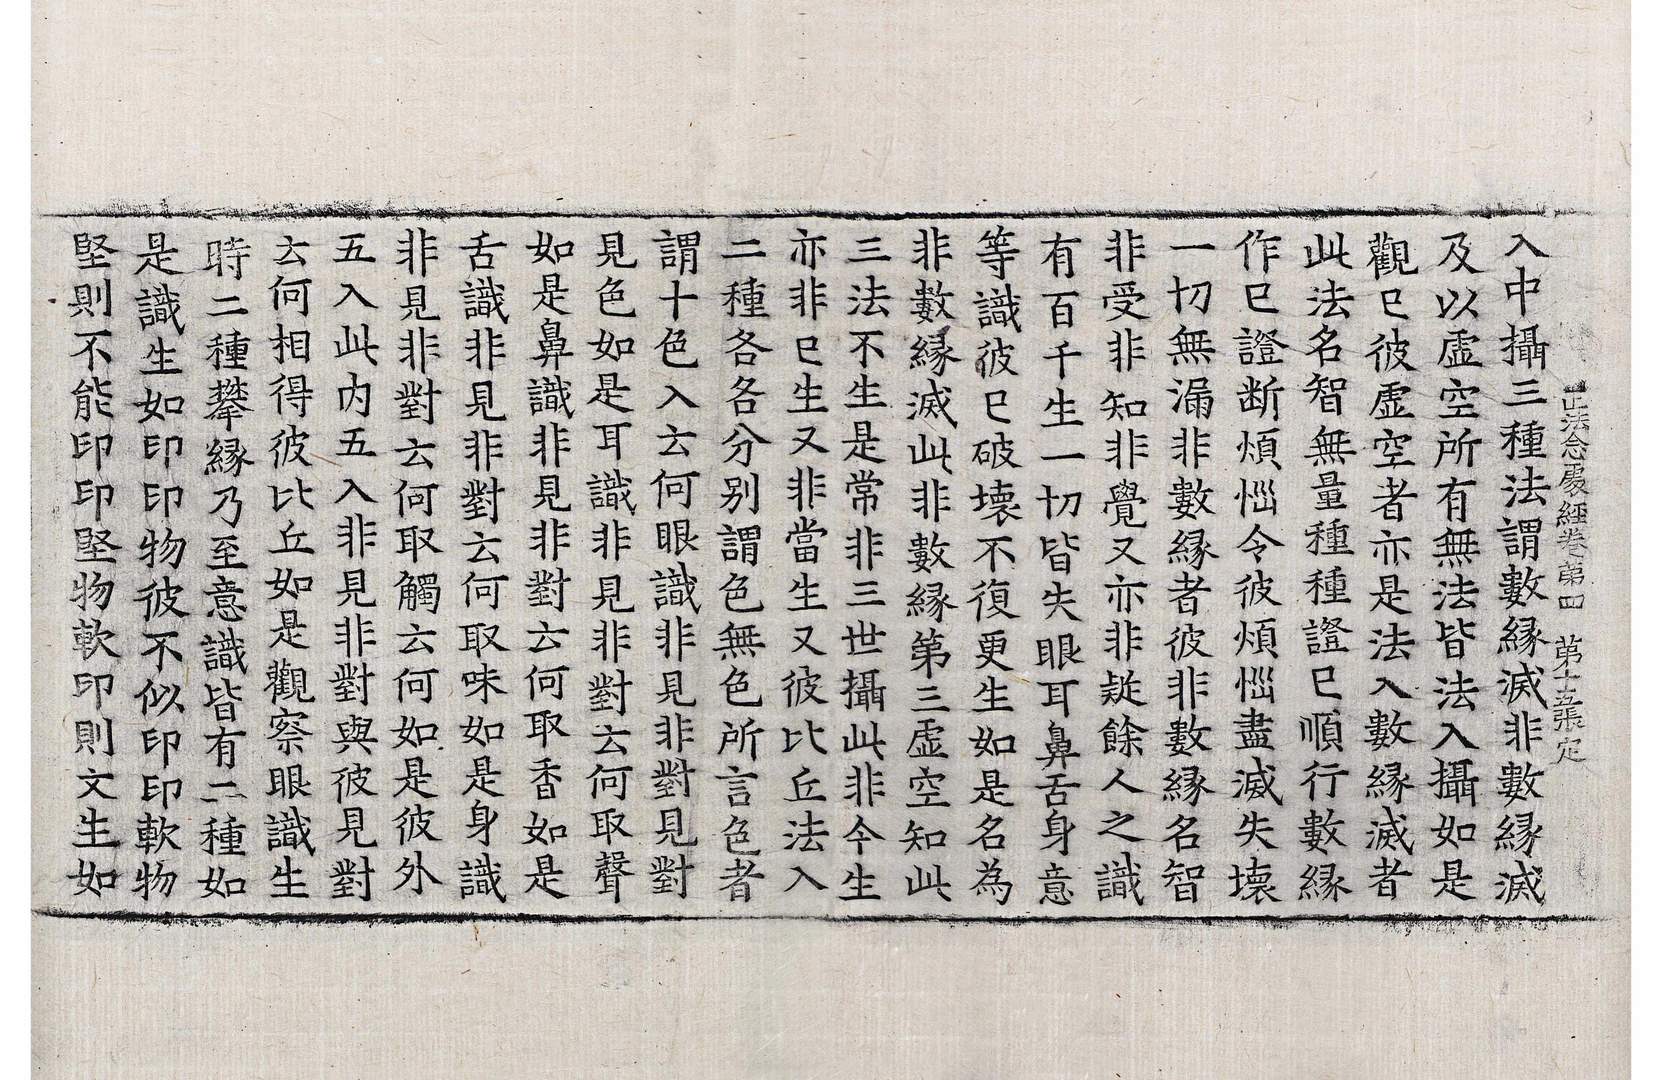 正法念處經卷第四 第十五張 定
入中攝三種法謂數緣滅非數緣滅
及以虛空所有無法皆法入攝如是
觀已彼虛空者亦是法入數緣滅者
此法名智無量種種證已順行數緣
作已證断煩惱令彼煩惱盡滅失壞
一切無漏非數緣者彼非數緣名智
非受非知非覺又亦非疑餘人之識
有百千生一切皆失眼耳鼻舌身意
等識彼已破壞不復更生如是名為
非數緣滅此非數緣第三虛空知此
三法不生是常非三世攝此非今生
亦非已生又非當生又彼比丘法入
二種各各分別謂色無色所言色者
謂十色入云何眼識非見非對見對
見色如是耳識非見非對云何取聲
如是鼻識非見非對云何取香如是
舌識非見非對云何取味如是身識
非見非對云何取觸云何如是彼外
五入此內五入非見非對與彼見對
云何相得彼比丘如是觀察眼識生
時二種攀緣乃至意識皆有二種如
是識生如印印物彼不似印印軟物
堅則不能印印堅物軟印則文生如